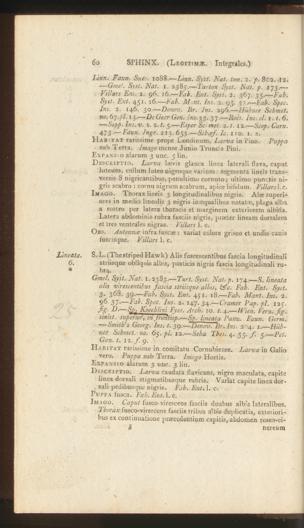 60 SPHINX. (LEGITIMÆ. Integrales.)
Linn. Faun. Suec. 1088.—Linn. Syst. Nat. tom. 2. p. 802. 12.
—Gmel. Syst. Nat. 1. 2387.—Turton Syst. Nat. p. 175.—
Villars Ent. 2. 96. 16.—Fab. Ent. Syst. 2. 367. 35.—Fab.
Syst. Ent. 451. 16.—Fab. Mant. Ins. 2. 95. —Fab. Spec.
Ins. 2. 146. 30.—Donov. Br. Ins. 296.—Hübner Schmet.
HABITAT rarissime prope Londinum, Larva in Pino. Puppa
sub Terra. Imago mense Junio Truncis Pini.
EXPANSIO alarum 3 unc. 5 lin.
DESCRIPTIO. Larva lævis glauca linea laterali flava, caput
luteum, collum luteo nigroque varium: segmenta linels trans-
versis 8 nigricantibus, penultimo cornuto; ultimo punctis ni-
gris scabro: cornu nigrum scabrum, apice bifidum. Villars l. c.
IMAGO. Thorax lineis 2 longitudinalibus nigris. Alæ superi-
ores in medio lineolis 3 nigris inæqualibus notatæ, plaga alba
a rostro per latera thoracis et marginem exteriorem nibita.
Latera abdominis rubra fasciis nigris, præter lineam dorsalem
et tres ventrales nigras. Villars l. c.
OBS. Antennæ infra fuscæ: variat colore griseo et undis canis
fuscisque. Villars l. c.
Lineata. S.L. (The striped Hawk) Alis fuscescentibus fascia longitudinali
6. striisque obliquis albis, posticis nigris fascia longitudinali ru-
bra.
Gmel. Syst. Nat. 1. 2385.—Turt. Syst. Nat. p. 174.—S. lineata
alis virescentibus fascia striisque albis, &c. Fab. Ent. Syst.
3. 368. 39.—Fab. Syst. Ent. 451. 18.—Fab. Mant. Ins. 2.
96. 37.—Fab. Spec. Ins. 2. 147. 34.—Cramer Pap. pl. 125.
fig. D.—Sp. Koechlini Fues. Arch. 10. 1. 4.—Wien. Verz. 
—Smith's Georg. Ins. 1. 39.—Donov. Br. Ins. 204. 1.—Hüb-
ner Schmet. no. 65. pl. 12.—Seba Thes. 4. 35. f. 5.—Pet.
Gen. t. 12. f. 9.
HABITAT rarissime in comitatu Cornubiense. Larva in Galio
vero. Puppa sub Terra. Imago Hortis.
EXPANSIO alarum 3 unc.
DESCRIPTIO. Larva caudata flavicans, nigro maculata, capite
linea dorsali stigmatibusque rubris. Variat capite linea dor-
sali pedibusque nigris. Fab. Ent. l. c.
PUPPA fusca. Fab. Ent. l. c.
IMAGO. Caput fusco-virescens fasciis duabus albis lateralibus.
Thorax fusco-virescens fasciis tribus albis duplicatis, exteriori-
bus ex continuatione præcedentium capitis, abdomen roseo-ci-
nereum